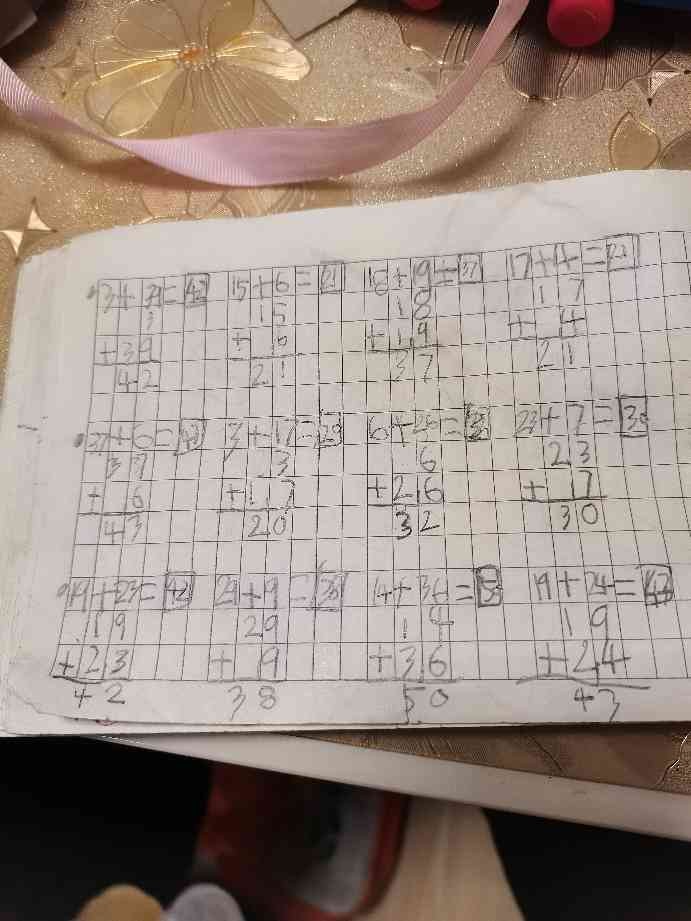 3+39=42 15+6=21 18+19=37 17+4=21
3 15 18 17
+39 + 6 +19 + 4
42 21 37 21
37+6=43 3+17=20 6+26=32 23+7=30
37 3 6 23
+ 6 +17 +26 + 7
43 20 32 30
19+23=42 29+9=38 14+36=50 19+24=43
19 29 14 19
+23 + 9 +36 +24
42 38 50 43